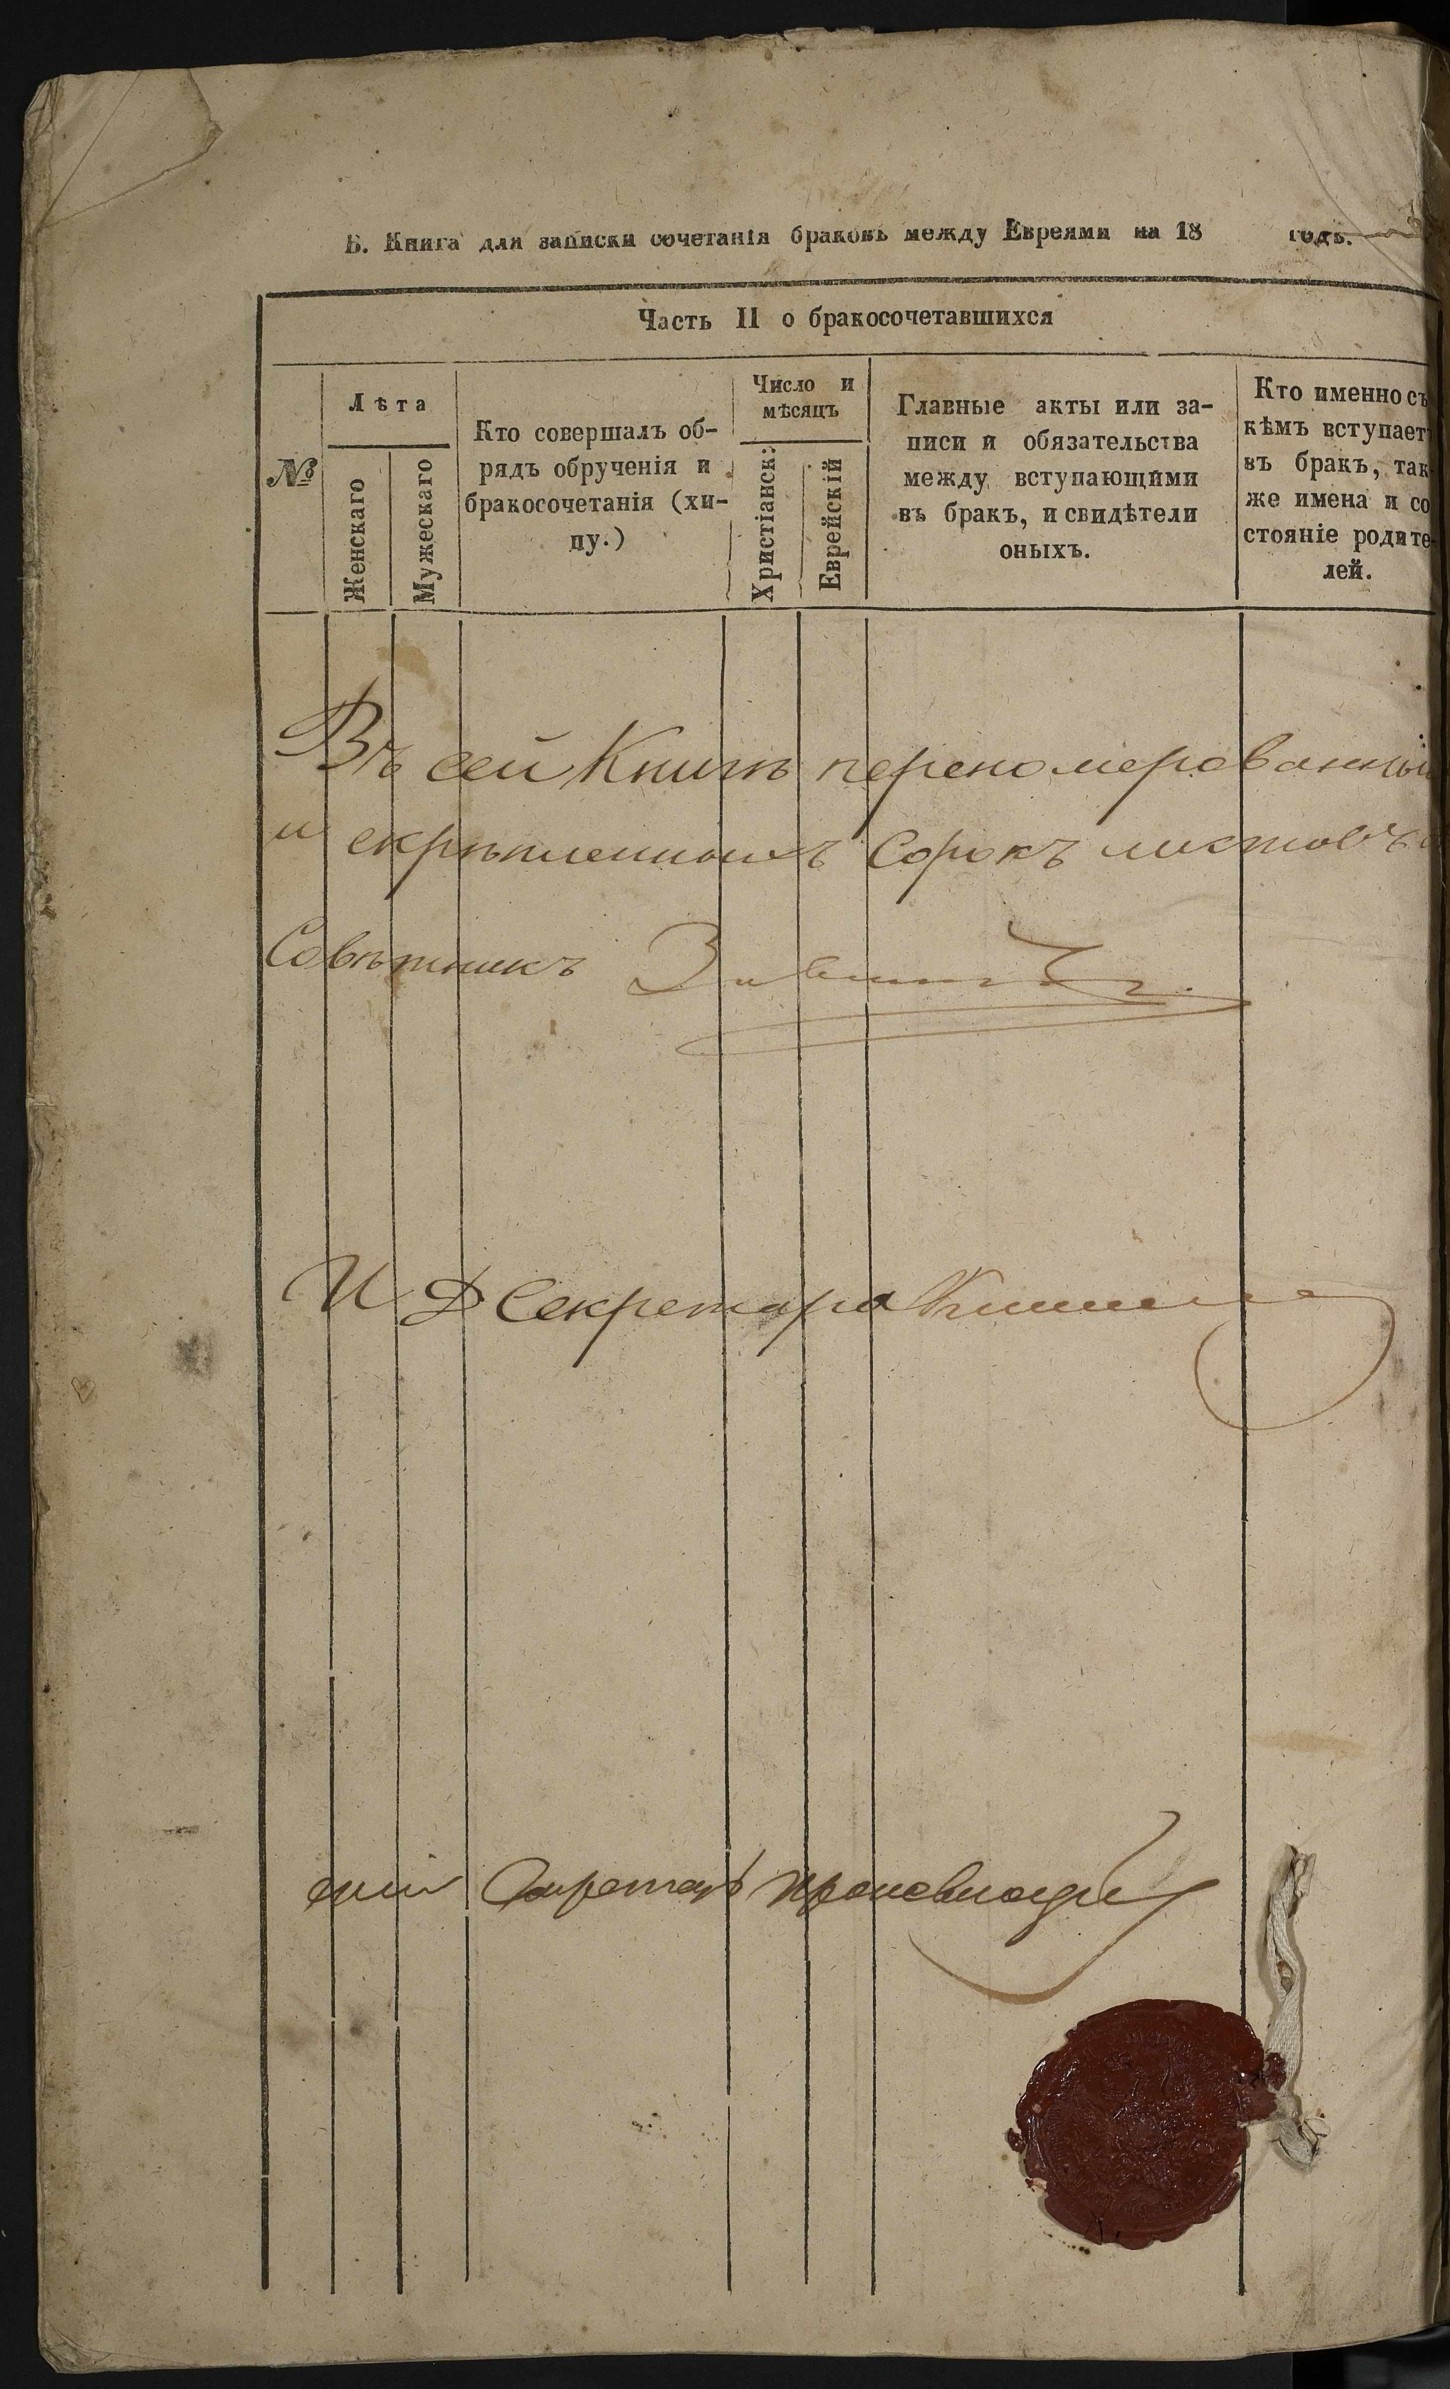 Б. Книга для записки сочетанія браковъ между Евреями на 18 годъ.
Часть II о бракосочетавшихся
№
Лѣта
Женскаго
Мужескаго
Кто совершалъ об-
рядъ обрученія и
бракосочетанія (хи-
пу.)
Число и
мѣсяцъ
Христіанск:
Еврейскій
Главные акты или за-
писи и обязательства
между вступающими
въ бракъ, и свидѣтели
оныхъ.
Кто именно съ
кѣмъ вступаетъ
въ бракъ, так-
же имена и со
стояніе родите-
лей.
Въ сей Книгѣ переномерованный
и скрѣпленныхъ Сорокъ листовъ
Совѣтникъ
И Д Секретаря
Секретарь